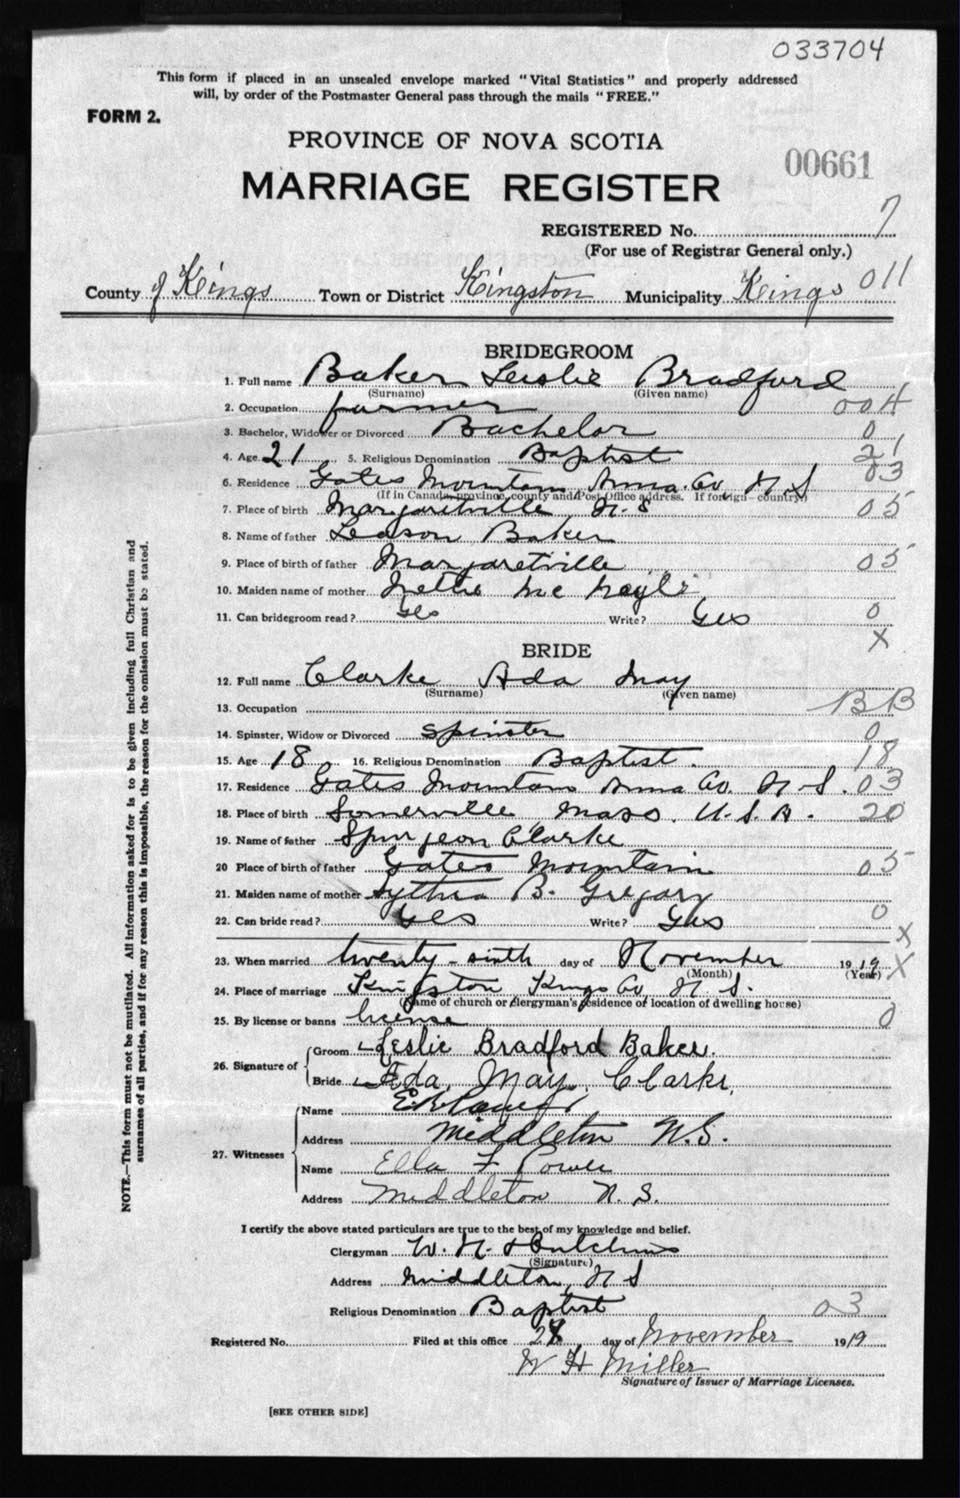 033704
This form if placed in an unsealed envelope marked "Vital Statistics" and properly addressed
will, by order of the Postmaster General pass through the mails "FREE."
FORM 2.
PROVINCE OF NOVA SCOTIA
00661
MARRIAGE REGISTER
REGISTERED No. 7
(For use of Registrar General only.)
County of Kings Town or District Kingston Municipality Kings 011
BRIDEGROOM
1. Full name Baker Leislie Bradford
(Surname) (Given name)
2. Occupation farmer 004
3. Bachelor, Widower or Divorced Bachelor 0
4. Age 21 5. Religious Denomination Baptist 21
6. Residence Gates Mountain Anna. Co N S 03
(If in Canada, province, county and Post Office address. If foreign—country)
7. Place of birth Margaretville N. S 05
8. Name of father Leason Baker
9. Place of birth of father Margaretville 05
10. Maiden name of mother Nettie
11. Can bridegroom read? Yes Write? Yes 0
X
BRIDE
12. Full name Clarke Ada May
(Surname) (Given name)
13. Occupation BB
14. Spinster, Widow or Divorced Spinster 0
15. Age 18 16. Religious Denomination Baptist. 18
17. Residence Gates Mountain Anna Co. N-S. 03
18. Place of birth Somerville Mass. U. S. A. 20
19. Name of father Spurgeon Clarke
20 Place of birth of father Gates Mountain 05
21. Maiden name of mother B. Gregory
22. Can bride read? Yes Write? Yes 0
X
23. When married twenty-sixth day of November 1919 X
(Month) (Year)
24. Place of marriage Kingston Kings Co, N. S.
(Name of church or clergyman's residence of location of dwelling house)
25. By license or banns license 0
26. Signature of
Groom Leslie Bradford Baker.
Bride Ada May Clarke,
27. Witnesses
Name
Address Middleton N.S.
Name Ella F
Address Middleton N. S.
I certify the above stated particulars are true to the best of my knowledge and belief.
Clergyman W. N. Hutchins
(Signature)
Address Middleton, N S
Religious Denomination Baptist 03
Registered No. Filed at this office 28 day of November 1919
W H Miller
Signature of Issuer of Marriage Licenses.
[SEE OTHER SIDE]
NOTE.—This form must not be mutilated. All information asked for is to be given including full Christian and
surnames of all parties, and if for any reason this is impossible, the reason for the omission must be stated.